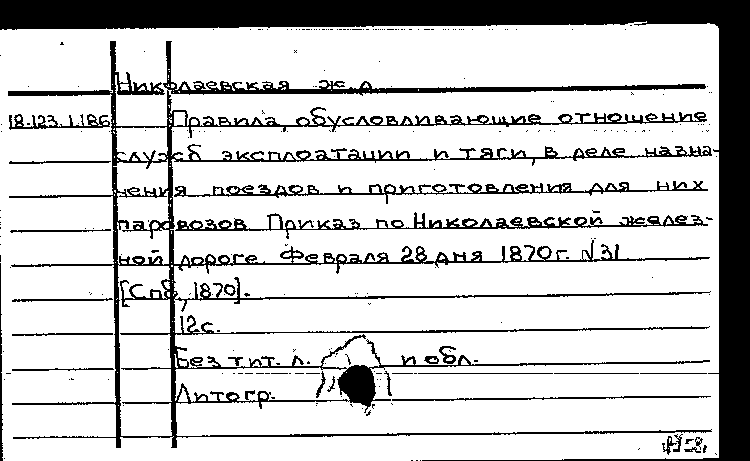 Николаевская ж.д.
18.123.1.186 Правила, обусловливающие отношение
служб эксплоатации и тяги, в деле назна-
чения поездов и приготовления для них
паровозов. Приказ по Николаевской желез-
ной дороге. Февраля 28 дня 1870 г. №31
[Спб, 1870].
12с.
Без тит. л. и обл.
Литогр.